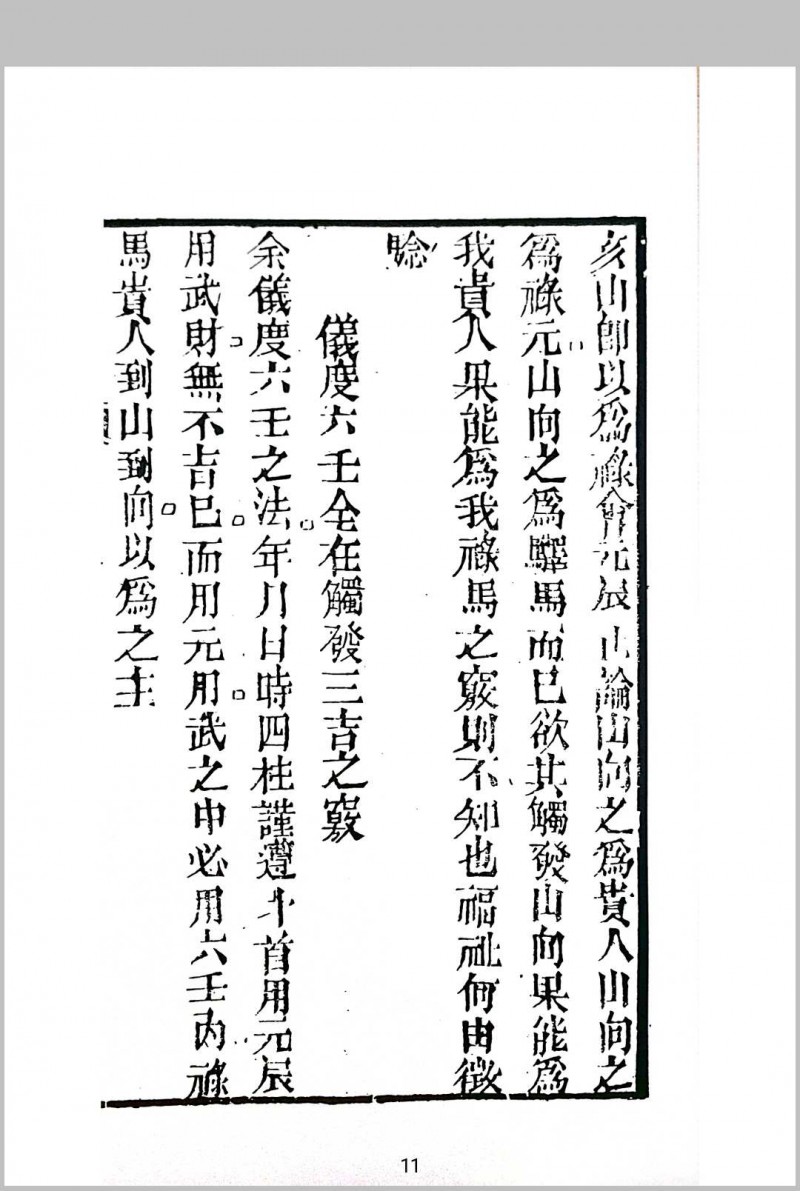 亥山即以爲祿會元辰止論山向之爲貴人山向之
爲祿元山向之爲驛馬而已欲其觸發山向果能爲
我貴人果能爲我祿馬之竅則不知也福祉何由徵
驗
儀度六壬全在觸發三吉之竅
余儀度六壬之法年月日時四柱謹遵斗首用元辰
用武財無不吉已而用元用武之中必用六壬內祿
馬貴人到山到向以爲之主
11